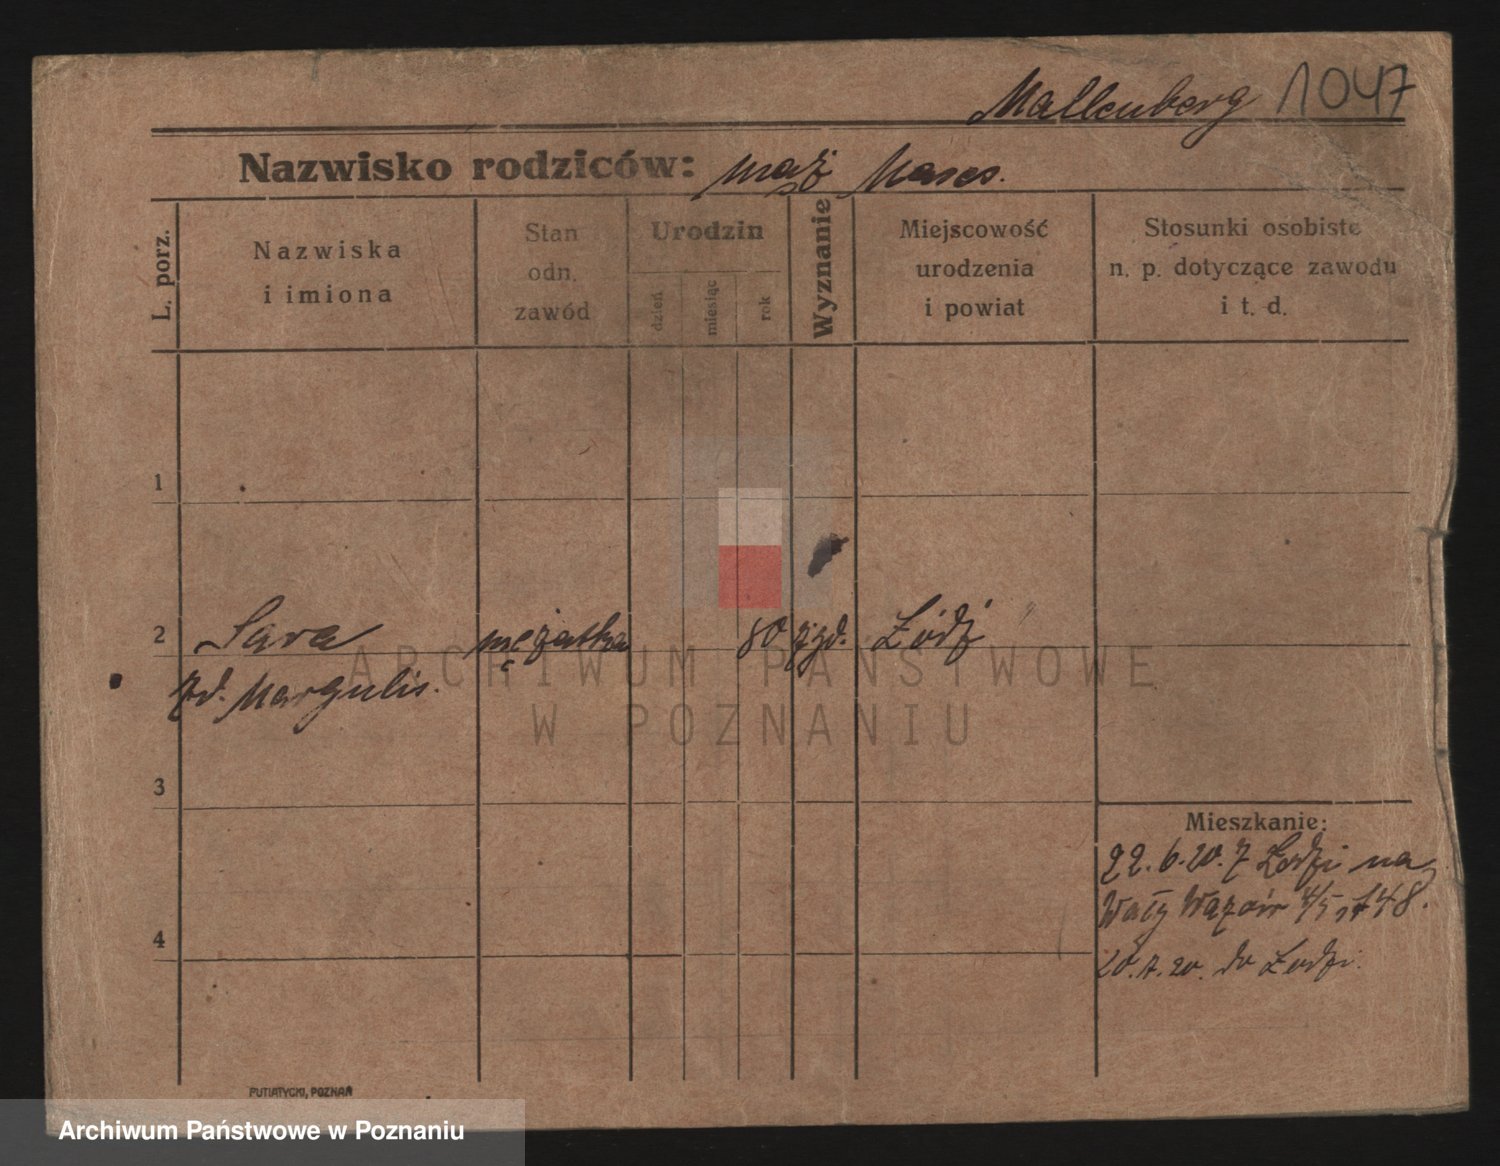 Mallenberg 1047
Nazwisko rodziców: mąż Mares.
L. porz.
Nazwiska
i imiona
Stan
odn.
zawód
Urodzin
dzień
miesiąc
rok
Wyznanie
Miejscowość
urodzenia
i powiat
Stosunki osobiste
n. p. dotyczące zawodu
i t. d.
1
2 Sara mężatka 80 żyd. Łódź
zd. Margulis.
3
4
Mieszkanie:
22.6.20. z Łodzi na
Wały Wazów 4/5
20. 20. do Łodzi.
PUTIATYCKI, POZNAŃ
ARCHIWUM PAŃSTWOWE
W POZNANIU
Archiwum Państwowe w Poznaniu